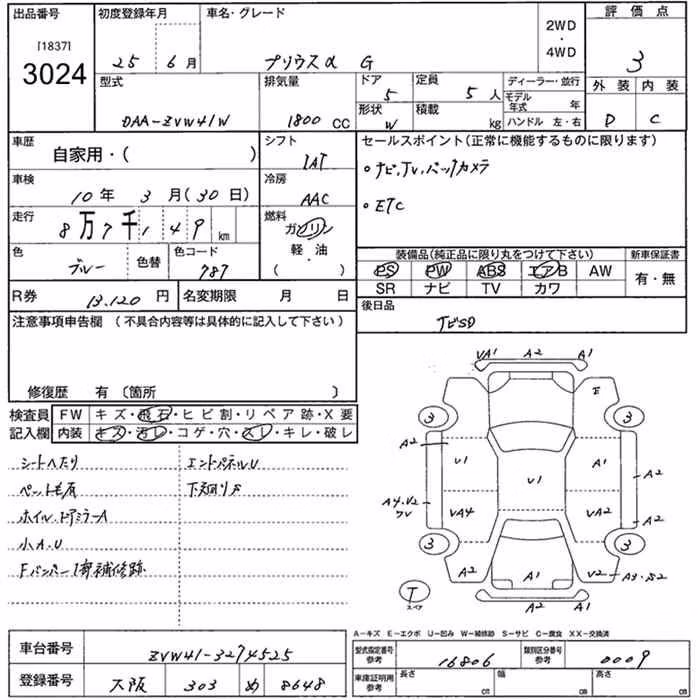 出品番号 初度登録年月 車名・グレード 2WD・4WD 評価点
[1837]
3024 25年 6月 プリウスα G 3
型式 排気量 ドア 5 定員 5人 ディーラー・並行 外装 内装
DAA-ZVW41W 1800 CC 形状 W 積載 kg モデル年式 年 D C
ハンドル 左・右
車歴 自家用・( ) シフト IAT セールスポイント(正常に機能するものに限ります)
・ナビ,TV,バックカメラ
車検 10年 3月(30日) 冷房 AAC
・ETC
走行 8万7千149km 燃料 ガソリン
軽・油
・
( )
色 ブルー 色替 色コード 787
装備品(純正品に限り丸をつけて下さい) 新車保証書
PS PW ABS エアB AW 有・無
SR ナビ TV カワ
R券 13,120円 名変期限 月 日
後日品
ナビSD
注意事項申告欄 (不具合内容等は具体的に記入して下さい)
修復歴 有 〔箇所 〕
検査員記入欄 FW キズ・飛石・ヒビ割・リペア跡・X要
内装 キズ・汚レ・コゲ・穴・スレ・キレ・破レ
シートへたり エンドパネルU
ペット毛有 下廻りS
ホイル.ドアミラーA
小A.U
Fバンパー1部補修跡
VA1 A2 A1
E
3 3
A2 U1 A1 A2
U1
A4.V2 VA4 VA2 A2
3 3
A2 A1 V2 A3.S2
T
スペア
A2 A1
A-キズ E-エクボ U-凹み W-補修跡 S-サビ C-腐食 XX-交換済
車台番号 ZVW41-3274525 型式指定番号 参考 16806 類別区分番号 参考 0009
登録番号 大阪 303 め 8648 車庫証明用 参考 長さ cm 幅 cm 高さ cm